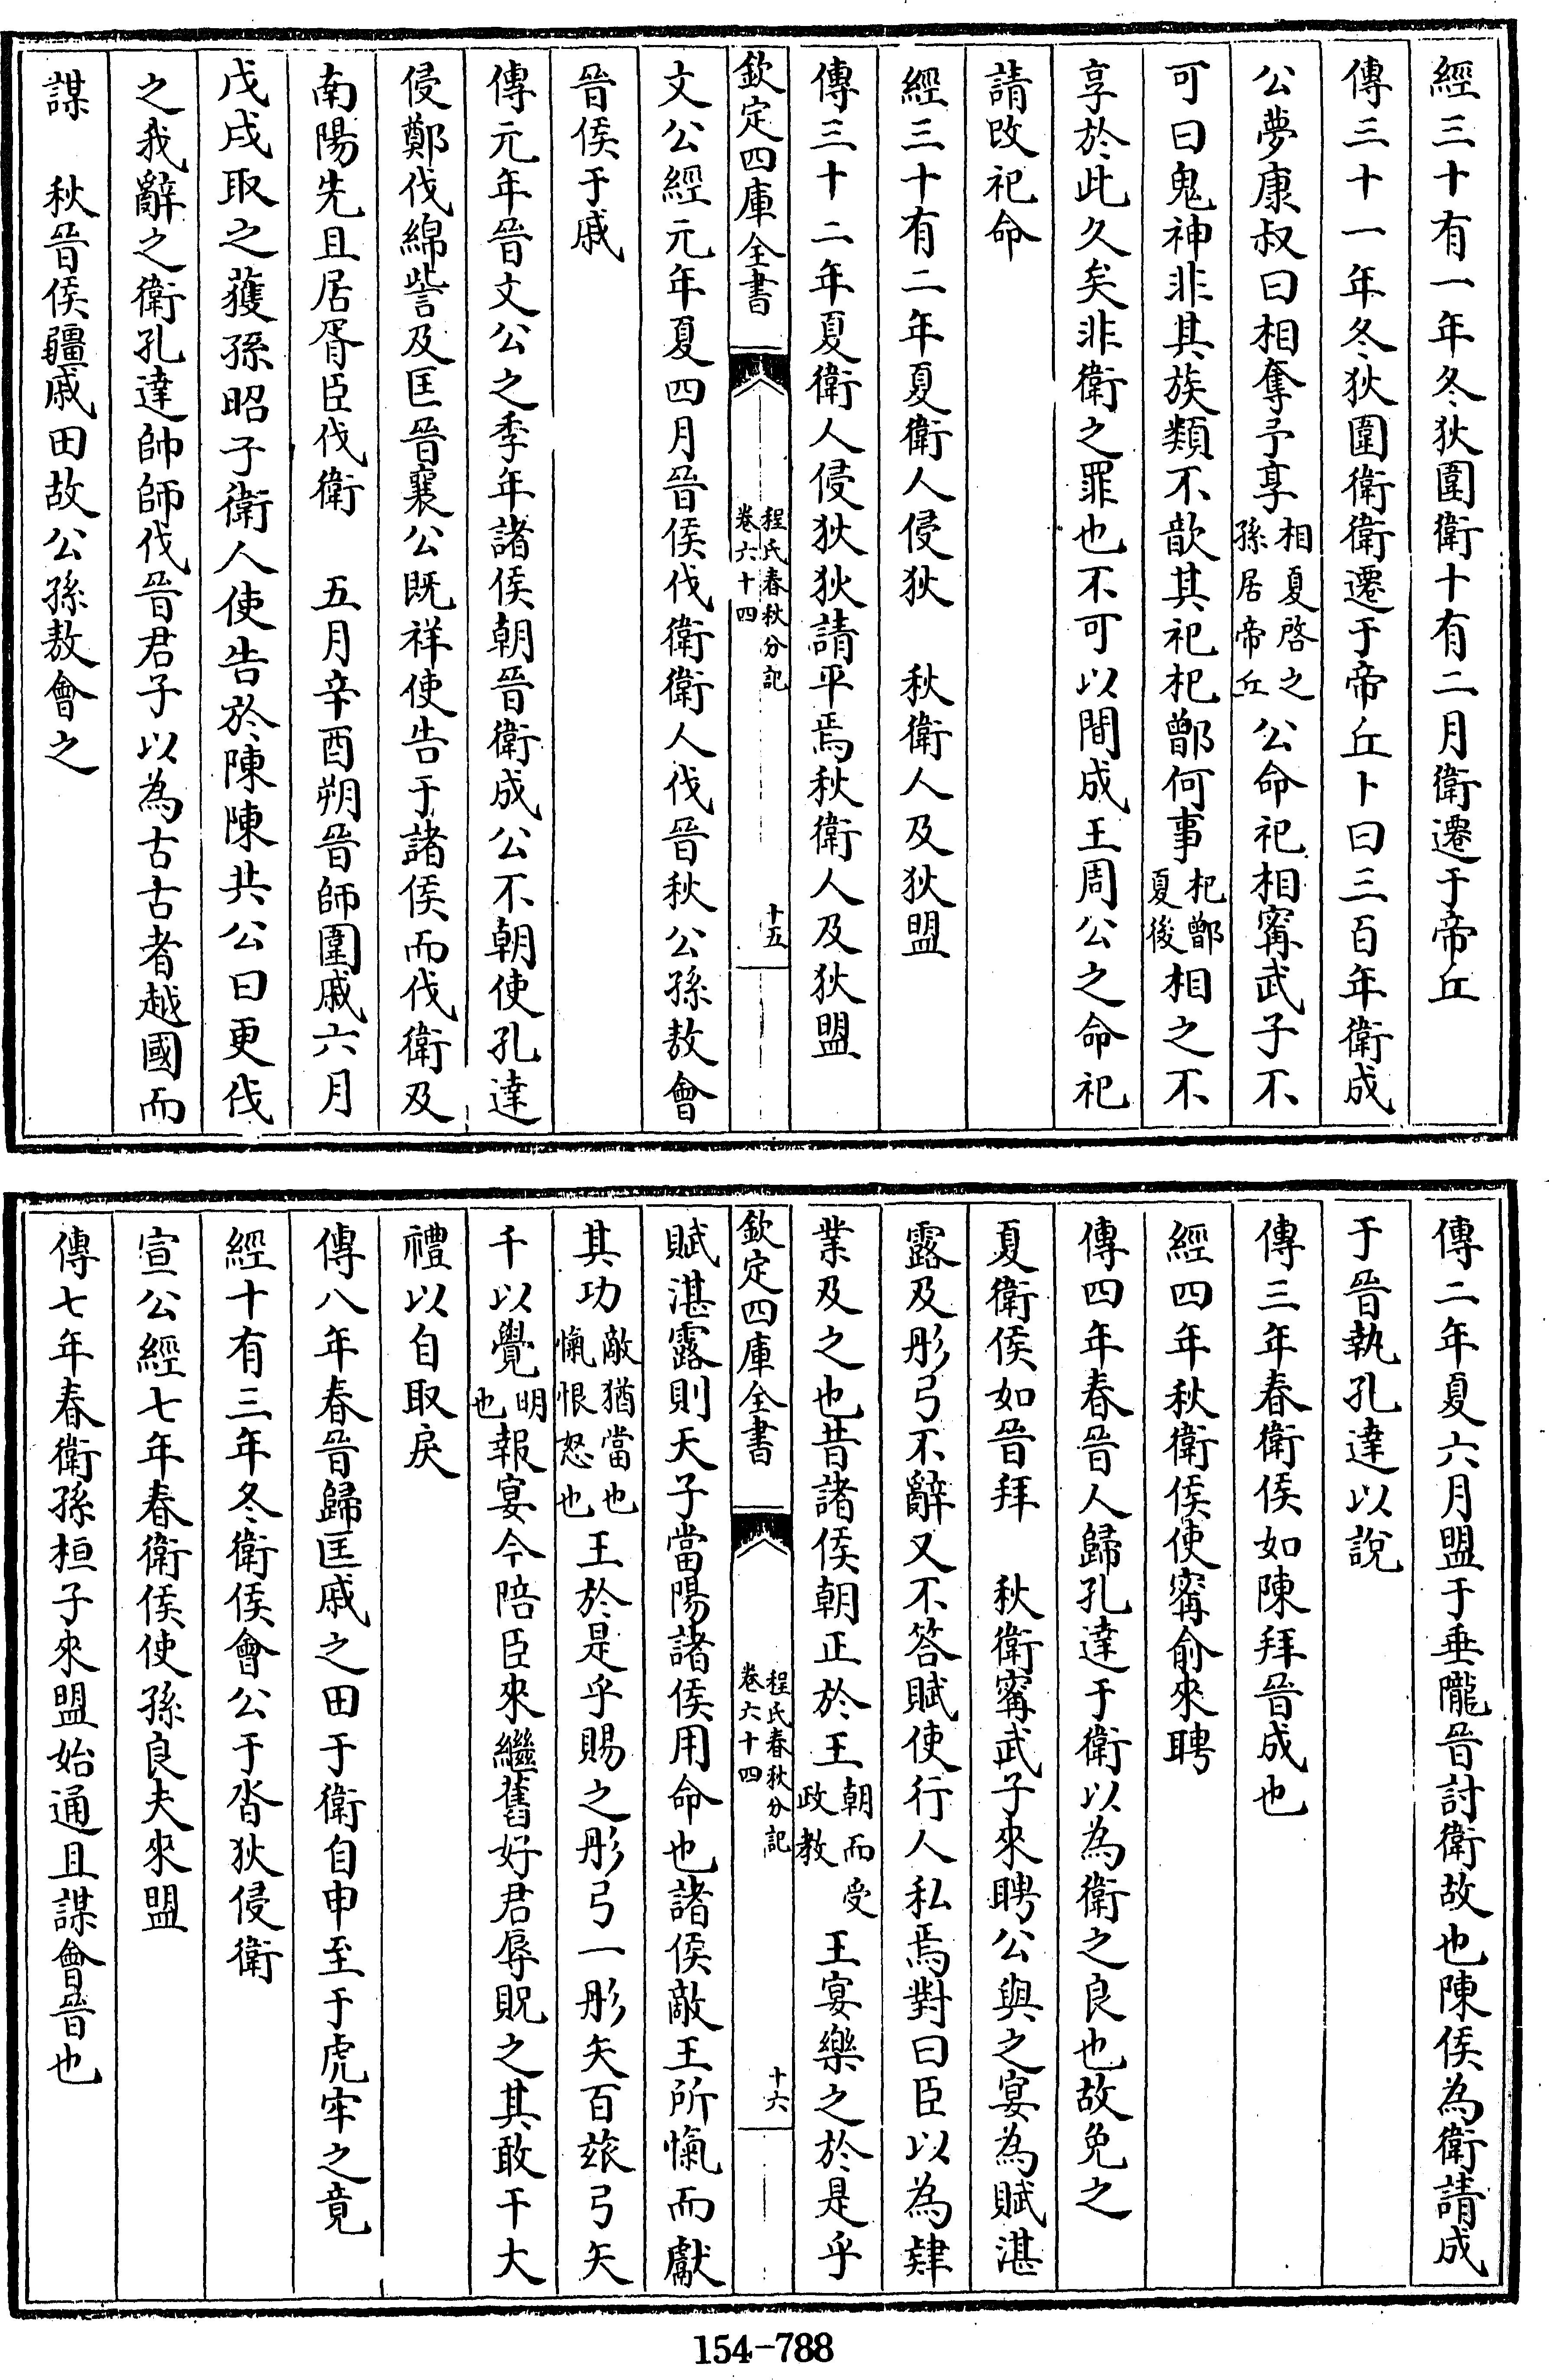 經三十有一年冬狄圍衛十有二月衛遷于帝丘
傳三十一年冬狄圍衛衛遷于帝丘卜曰三百年衛成
公夢康叔曰相奪予享相夏啓之孫居帝丘公命祀相甯武子不
可曰鬼神非其族類不歆其祀杞鄫何事杞鄫夏後相之不
享於此久矣非衛之罪也不可以間成王周公之命祀
請改祀命
經三十有二年夏衛人侵狄　秋衛人及狄盟
傳三十二年夏衛人侵狄狄請平焉秋衛人及狄盟
欽定四庫全書　程氏春秋分記卷六十四　十五
文公經元年夏四月晉侯伐衛衛人伐晉秋公孫敖會
晉侯于戚
傳元年晉文公之季年諸侯朝晉衛成公不朝使孔達
侵鄭伐綿訾及匡晉襄公既祥使告于諸侯而伐衛及
南陽先且居胥臣伐衛　五月辛酉朔晉師圍戚六月
戊戌取之獲孫昭子衛人使告於陳陳共公曰更伐
之我辭之衛孔達帥師伐晉君子以為古古者越國而
謀　秋晉侯疆戚田故公孫敖會之
傳二年夏六月盟于垂隴晉討衛故也陳侯為衛請成
于晉執孔達以說
傳三年春衛侯如陳拜晉成也
經四年秋衛侯使甯俞來聘
傳四年春晉人歸孔達于衛以為衛之良也故免之
夏衛侯如晉拜　秋衛甯武子來聘公與之宴為賦湛
露及彤弓不辭又不答賦使行人私焉對曰臣以為肄
業及之也昔諸侯朝正於王朝而受政教王宴樂之於是乎
欽定四庫全書　程氏春秋分記卷六十四　十六
賦湛露則天子當陽諸侯用命也諸侯敵王所愾而獻
其功敵猶當也愾恨怒也王於是乎賜之彤弓一彤矢百玈弓矢
千以覺明也報宴今陪臣來繼舊好君辱貺之其敢干大
禮以自取戾
傳八年春晉歸匡戚之田于衛自申至于虎牢之竟
經十有三年冬衛侯會公于沓狄侵衛
宣公經七年春衛侯使孫良夫來盟
傳七年春衛孫桓子來盟始通且謀會晉也
154-788